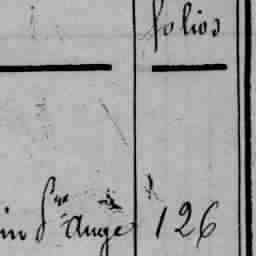 folios
in Sr Ange 126